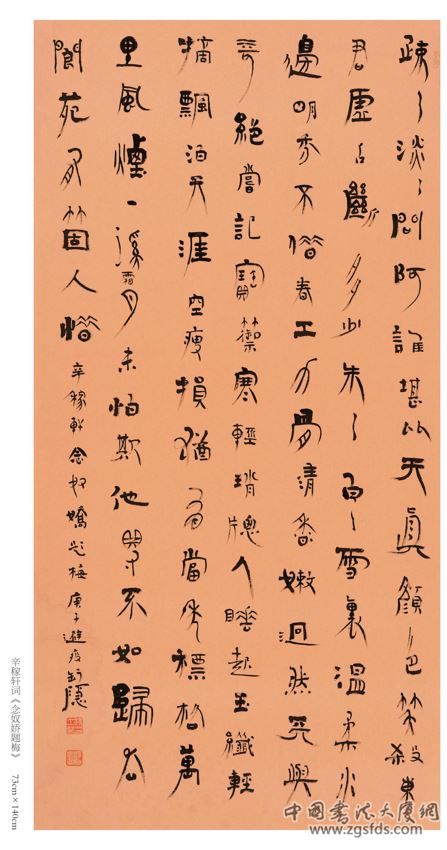 疎〻淡〻問阿誰堪比天真顏色笑殺東
君虛占斷多少朱〻白〻雪裏溫柔水
邊明秀不借春工力骨清香嫩迥然天與
奇絕嘗記寶籞寒輕瑣牕人睡起玉纖輕
摘飄泊天涯空瘦損猶有當年標格萬
里風煙一溪霜月未怕欺他得不如歸去
閬苑有箇人惜
辛稼軒念奴嬌題梅 庚子避疫 隱
辛稼轩词《念奴娇题梅》 73cm×140cm
中国书法大厦网
www.zgsfds.com